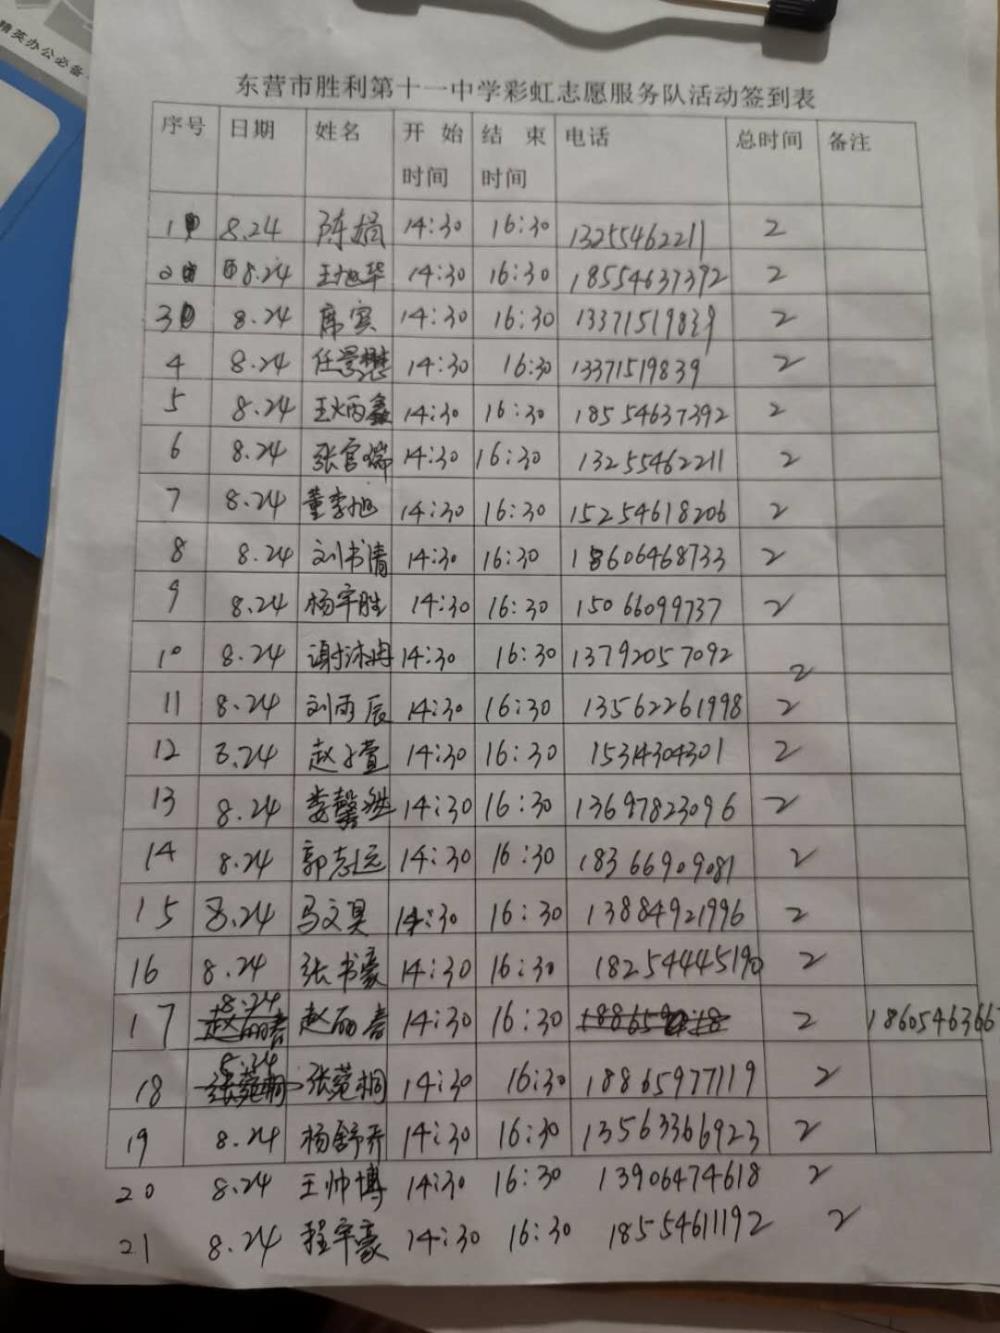 精英办公必备
东营市胜利第十一中学彩虹志愿服务队活动签到表
序号 日期 姓名 开始时间 结束时间 电话 总时间 备注
1 8.24 陈娟 14:30 16:30 13255462211 2
2 8.24 王旭华 14:30 16:30 18554637392 2
3 8.24 席宾 14:30 16:30 13371519839 2
4 8.24 任景懋 14:30 16:30 13371519839 2
5 8.24 王炳鑫 14:30 16:30 18554637392 2
6 8.24 张官瑞 14:30 16:30 13255462211 2
7 8.24 董李旭 14:30 16:30 15254618206 2
8 8.24 刘书清 14:30 16:30 18606468733 2
9 8.24 杨宇胜 14:30 16:30 15066099737 2
10 8.24 谢沐冉 14:30 16:30 13792057092 2
11 8.24 刘雨辰 14:30 16:30 13562261998 2
12 8.24 赵子萱 14:30 16:30 15314304301 2
13 8.24 14:30 16:30 13697823096 2
14 8.24 郭志远 14:30 16:30 18366909081 2
15 8.24 马文昊 14:30 16:30 13884921996 2
16 8.24 张书豪 14:30 16:30 18254445190 2
17 8.24 赵丽春 14:30 16:30 2 1860546366
18 8.24 张菀桐 14:30 16:30 18865977119 2
19 8.24 杨舒乔 14:30 16:30 13563366923 2
20 8.24 王帅博 14:30 16:30 13906474618 2
21 8.24 程宇豪 14:30 16:30 18554611192 2